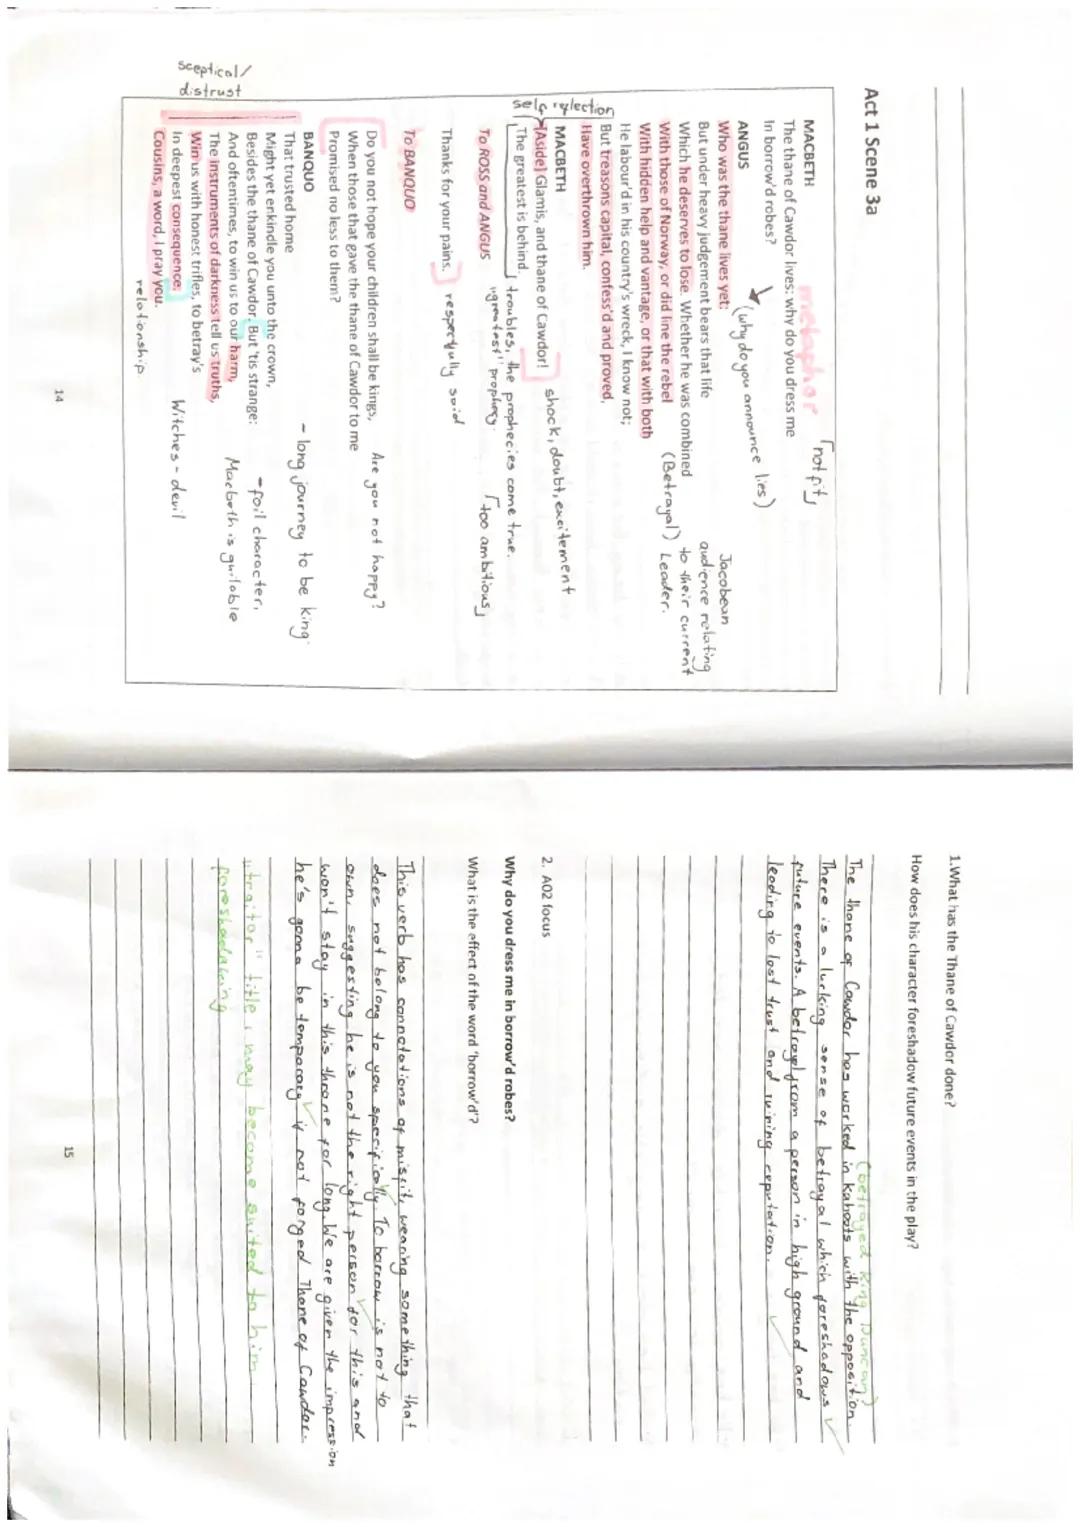 Act 1 Scene 3a
metaphor
「not fit」
MACBETH
The thane of Cawdor lives: why do you dress me
In borrow'd robes?
(why do you announce lies)
ANGUS
Who was the thane lives yet:
But under heavy judgement bears that life
Which he deserves to lose. Whether he was combined
With those of Norway, or did line the rebel
With hidden help and vantage, or that with both
He labour'd in his country's wreck, I know not;
But treasons capital, confess'd and proved,
Have overthrown him.
Jacobean
audience relating
to their current
Leader.
(Betrayal)
self reflection
MACBETH
[Aside] Glamis, and thane of Cawdor!
The greatest is behind.
shock, doubt, excitement
troubles, the prophecies come true.
"greatest" prophecy.
「too ambitious」
To ROSS and ANGUS
Thanks for your pains.
respectfully said
To BANQUO
Do you not hope your children shall be kings,
When those that gave the thane of Cawdor to me
Promised no less to them?
Are you not happy?
BANQUO
That trusted home
Might yet enkindle you unto the crown,
Besides the thane of Cawdor. But 'tis strange:
And oftentimes, to win us to our harm,
The instruments of darkness tell us truths,
Win us with honest trifles, to betray's
In deepest consequence.
Cousins, a word, I pray you.
- long journey to be king.
- foil character,
Macbeth is guilable
Witches - devil
sceptical/
distrust
relationship
14
1.What has the Thane of Cawdor done?
How does his character foreshadow future events in the play?
(betrayed King Duncan)
The thane of Cawdor has worked in kahoots with the opposition.
There is a lurking sense of betrayal which foreshadows
future events. A betrayal from a person in high ground and
leading to lost trust and ruining reputation.
2. A02 focus
Why do you dress me in borrow'd robes?
What is the effect of the word 'borrow'd'?
This verb has connotations of misfit, wearing something that
does not belong to you specifically. To borrow is not to
own, suggesting he is not the right person for this and
won't stay in this throne for long. We are given the impression
he's gonna be temporary if not forged Thane of Cawdor.
"traitor" title, may become suited to him,
foreshadowing
15